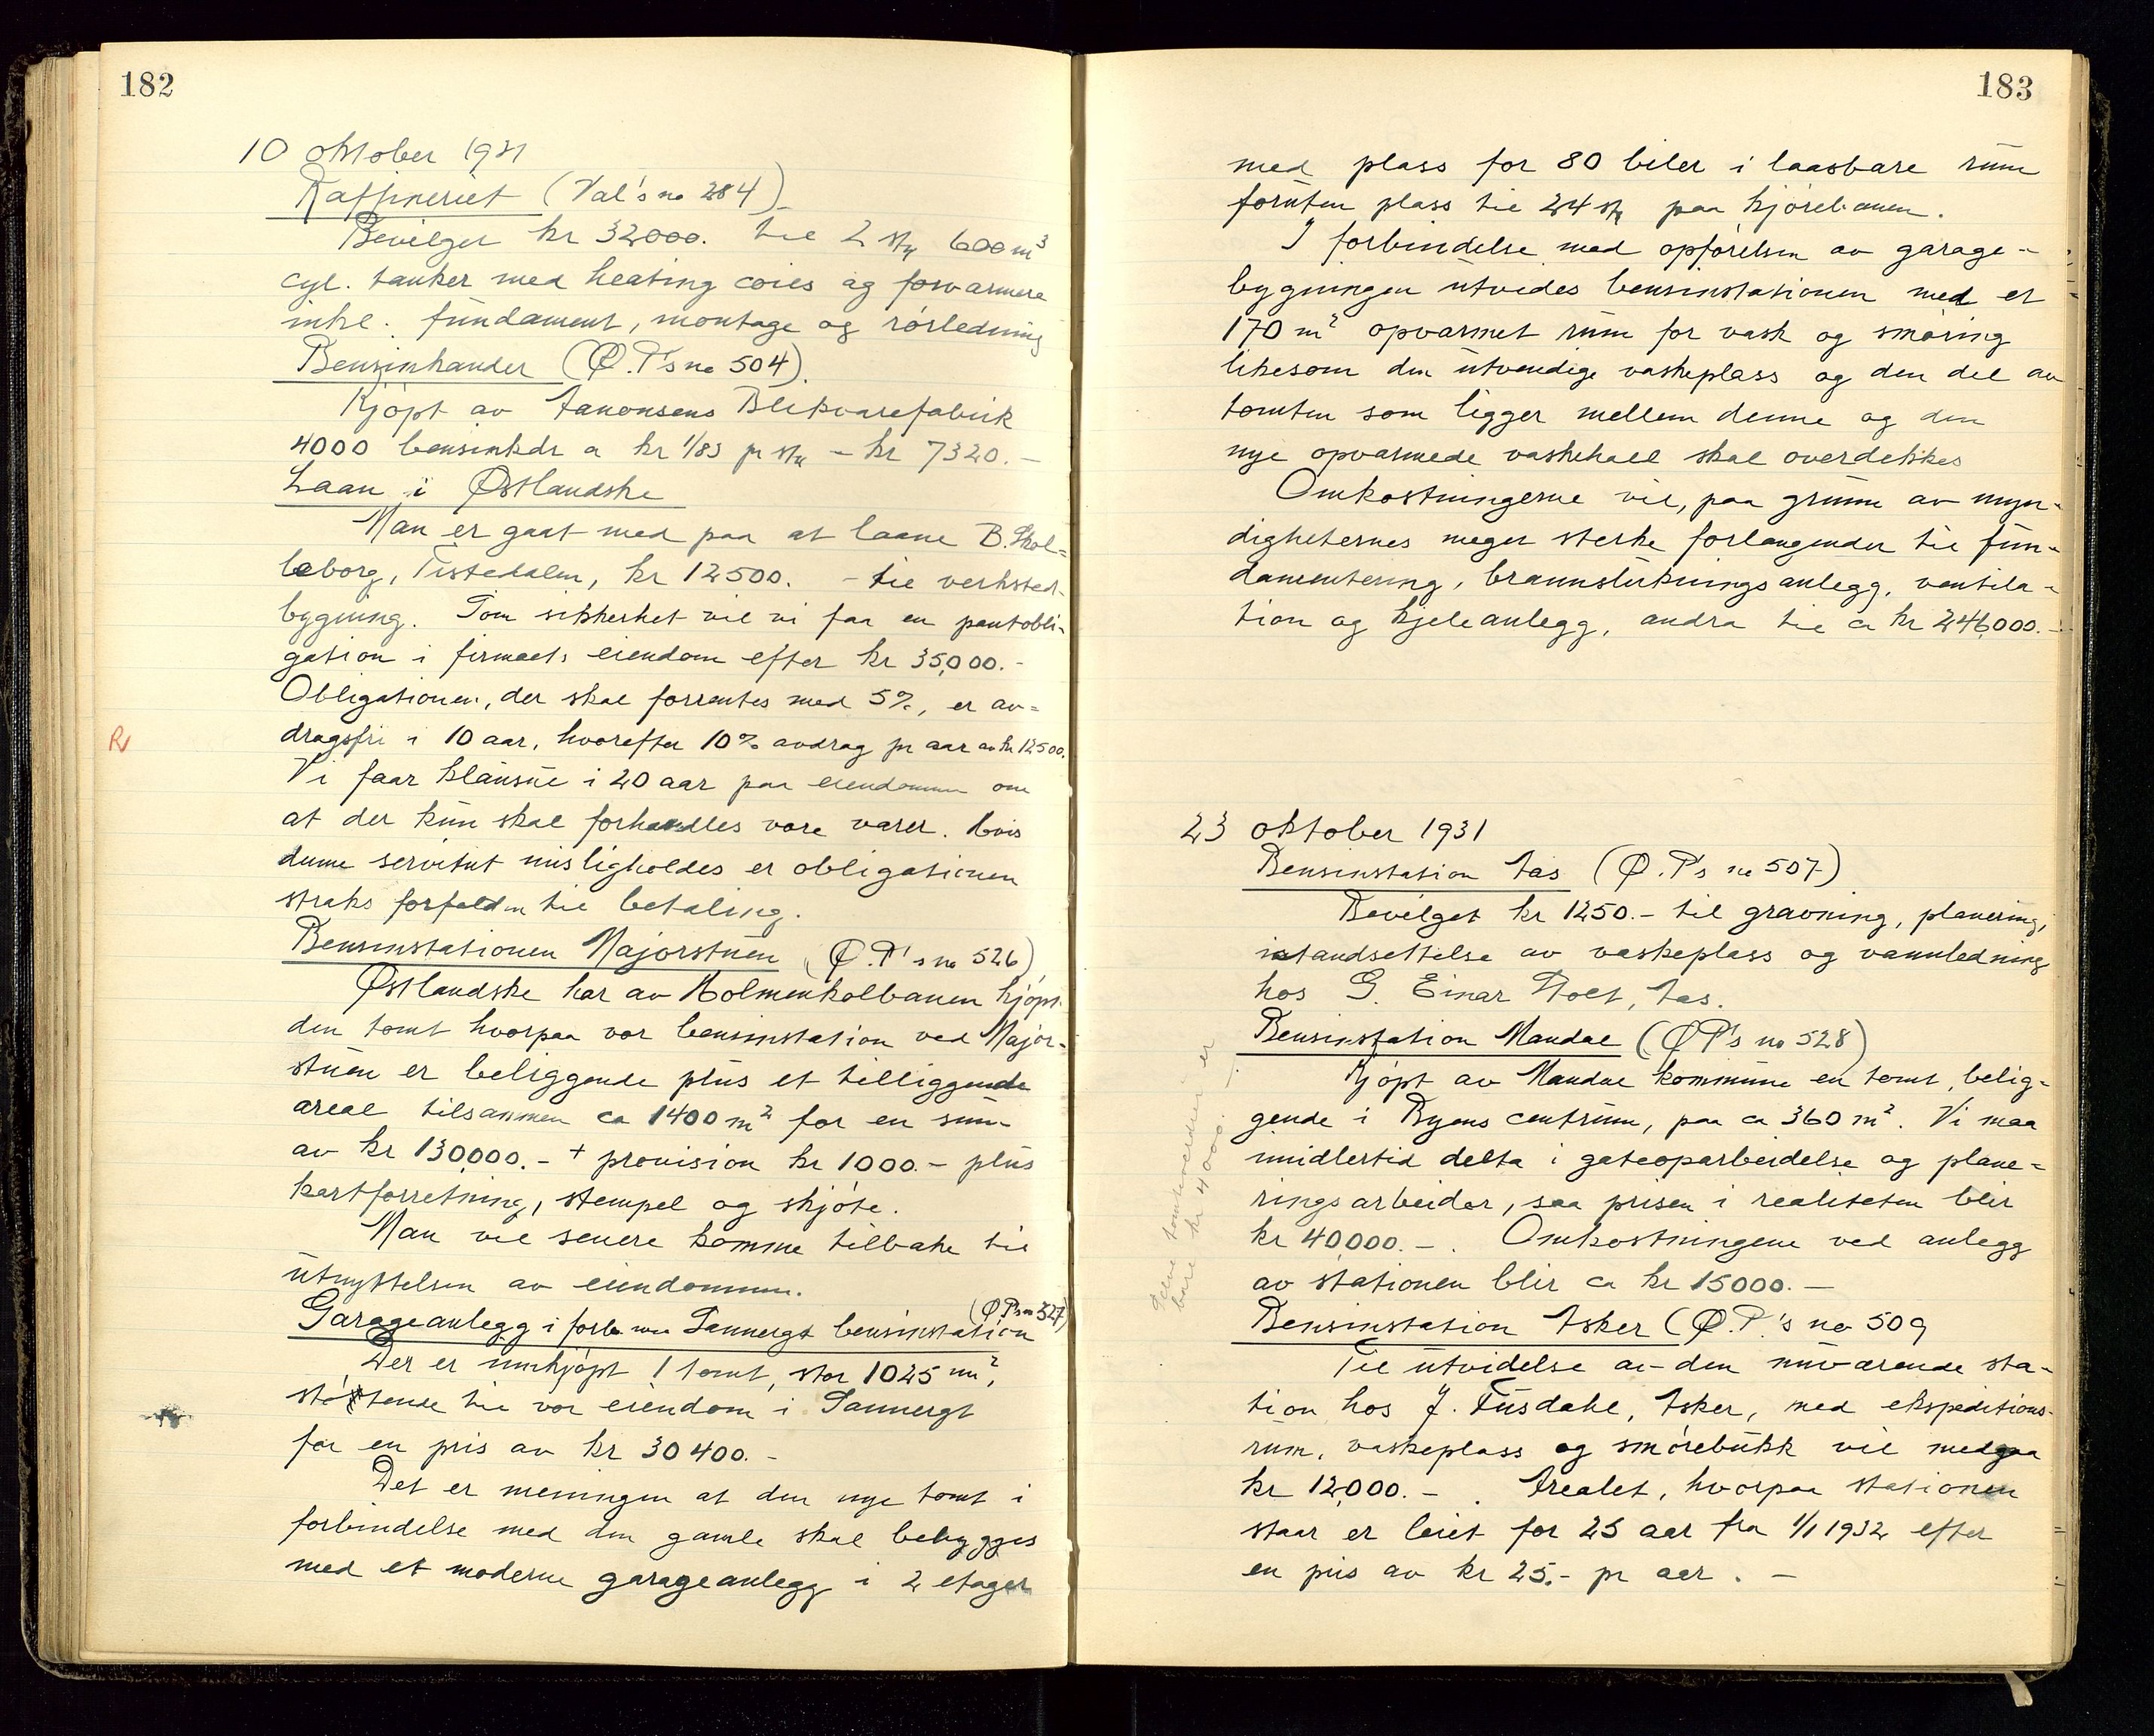 182
10 oktober 1931
Raffineriet (Val's no 284)
Bevilget kr 32000. til 2 stk 600 m³
cyl. tanker med heating coils og forvarmere
inkl. fundament, montage og rörledning
Bensinkander (Ø.P's no 504).
Kjöpt av Aanonsens Blikvarefabrik
4000 bensinkdr a kr 1/83 pr stk - kr 7320.-
Laan i Østlandske
Man er gaat med paa at laane B. Skol=
leborg, Tistedalen, kr 12500. - til verksted-
bygning. Som sikkerhet vil vi faa en pantobli-
gation i firmaets eiendom efter kr 35,000.-
Obligationen, der skal forrentes med 5%, er av=
R
dragsfri i 10 aar, hvorefter 10% avdrag pr aar av kr 12500.
Vi faar klausul i 20 aar paa eiendommen om
at der kun skal forhandles vore varer. Hvis
denne servitut misligholdes er obligationen
straks forfalden til betaling.
Bensinstationen Majorstuen (Ø.P's no 526)
Østlandske har av Holmenkolbanen kjöpt
den tomt hvorpaa vor bensinstation ved Major-
stuen er beliggende plus et tilliggende
areal tilsammen ca 1400 m² for en sum
av kr 130,000.- + provision kr 1000.- plus
kartforretning, stempel og skjöte.
Man vil senere komme tilbake til
utnyttelsen av eiendommen.
(Ø P's no 527)
Garageanlegg i forb. med Sannergt bensinstation
Der er innkjöpt 1 tomt, stor 1025 m²,
stötende til vor eiendom i Sannergt
for en pris av kr 30400.-
Det er meningen at den nye tomt i
forbindelse med den gamle skal bebygges
med et moderne garageanlegg i 2 etager
183
med plass for 80 biler i laasbare rum
foruten plass til 24 stk paa kjörebanen.
I forbindelse med opförelsen av garage-
bygningen utvides bensinstationen med et
170 m² opvarmet rum for vask og smöring
likesom den utvendige vaskeplass og den del av
tomten som ligger mellem denne og den
nye opvarmede vaskehall skal overdekkes
Omkostningerne vil, paa grunn av myn-
digheternes meget sterke forlangender til fun-
damentering, brannslukningsanlegg, ventila-
tion og kjeleanlegg, andra til ca kr 246,000.-
23 oktober 1931
Bensinstation Aas (Ø.P's no 507)
Bevilget kr 1250.- til gravning, planering,
istandsettelse av vaskeplass og vannledning
hos G. Einar Holt, Aas.
Bensinstation Mandal (ØP's no 528)
Kjöpt av Mandal kommune en tomt, belig-
gende i Byens centrum, paa ca 360 m². Vi maa
imidlertid delta i gateoparbeidelse og plane=
ringsarbeider, saa prisen i realiteten blir
kr 40,000.-. Omkostningene ved anlegg
av stationen blir ca kr 15000.-
Selve tomteverdien er
bare kr 4000.-
Bensinstation Asker (Ø.P.'s no 509
Til utvidelse av den nuværende sta-
tion hos J. Fusdahl, Asker, med ekspeditions-
rum, vaskeplass og smörebukk vil medgaa
kr 12,000.-. Arealet, hvorpaa stationen
staar er leiet for 25 aar fra 1/1 1932 efter
en pris av kr 25.- pr aar. -